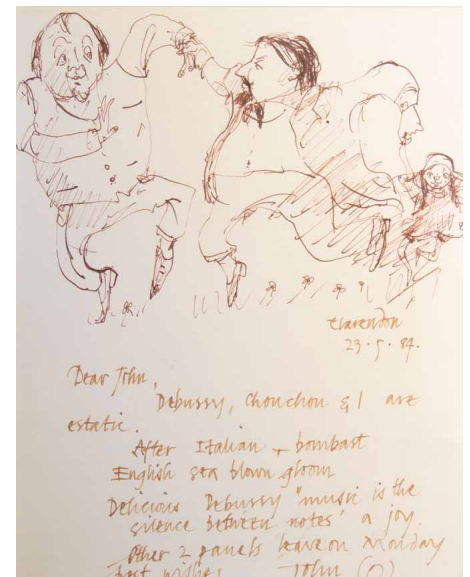 Clarendon
23·5·84.
Dear John,
Debussy, Chouchon & I are
estatic.
After Italian + bombast
English sea blown gloom
Delicious Debussy "music is the
silence between notes" a joy.
Other 2 panels leave on Monday
best wishes John